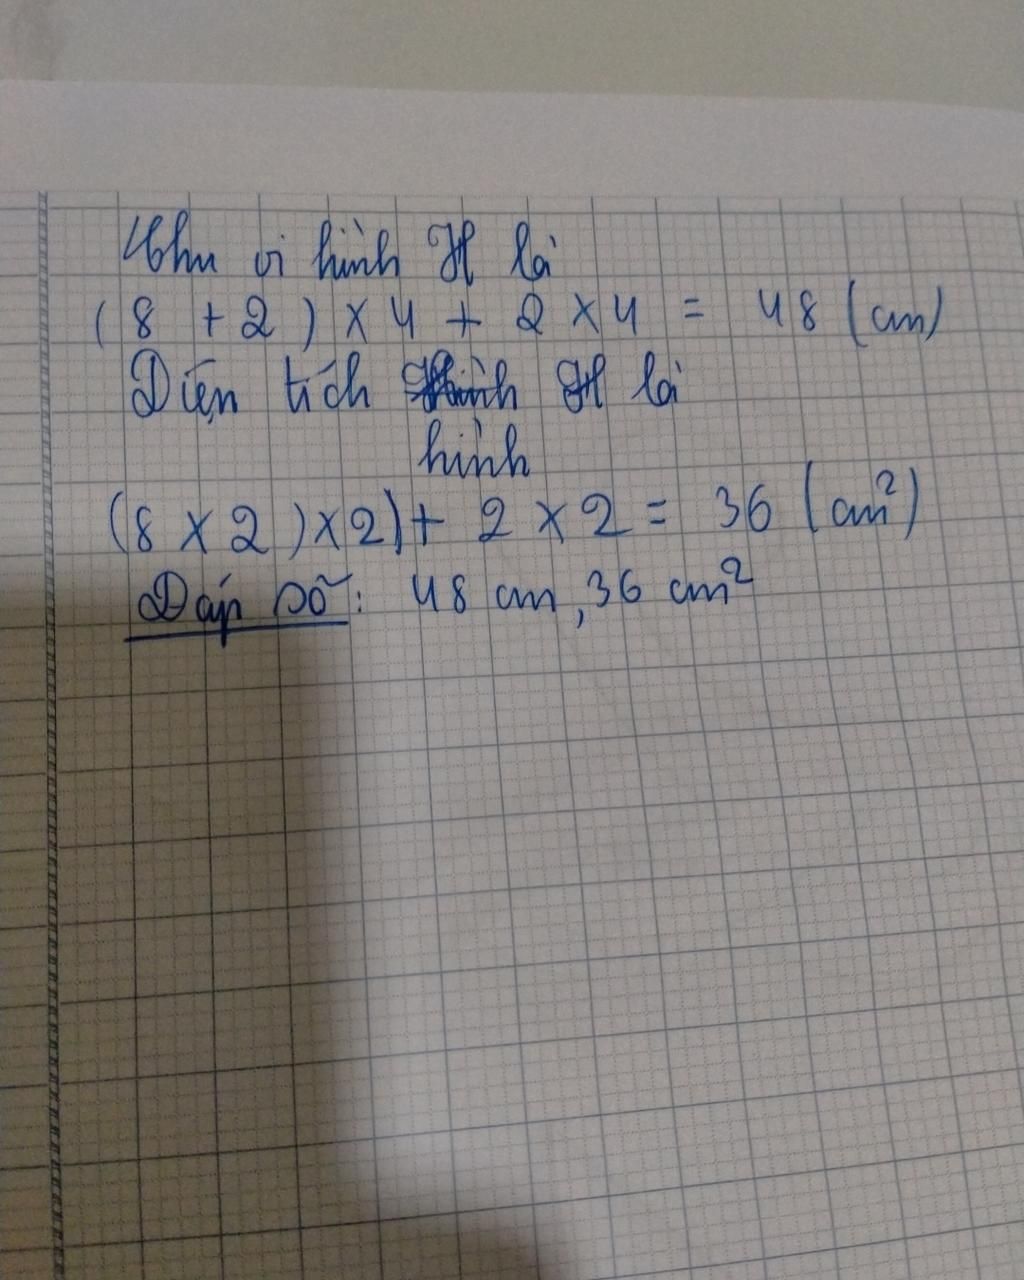 Chu vi hình H là
(8 + 2) x 4 + 2 x 4 = 48 (cm)
Diện tích hình H là
hình
(8 x 2) x 2) + 2 x 2 = 36 (cm²)
Đáp số: 48 cm, 36 cm²